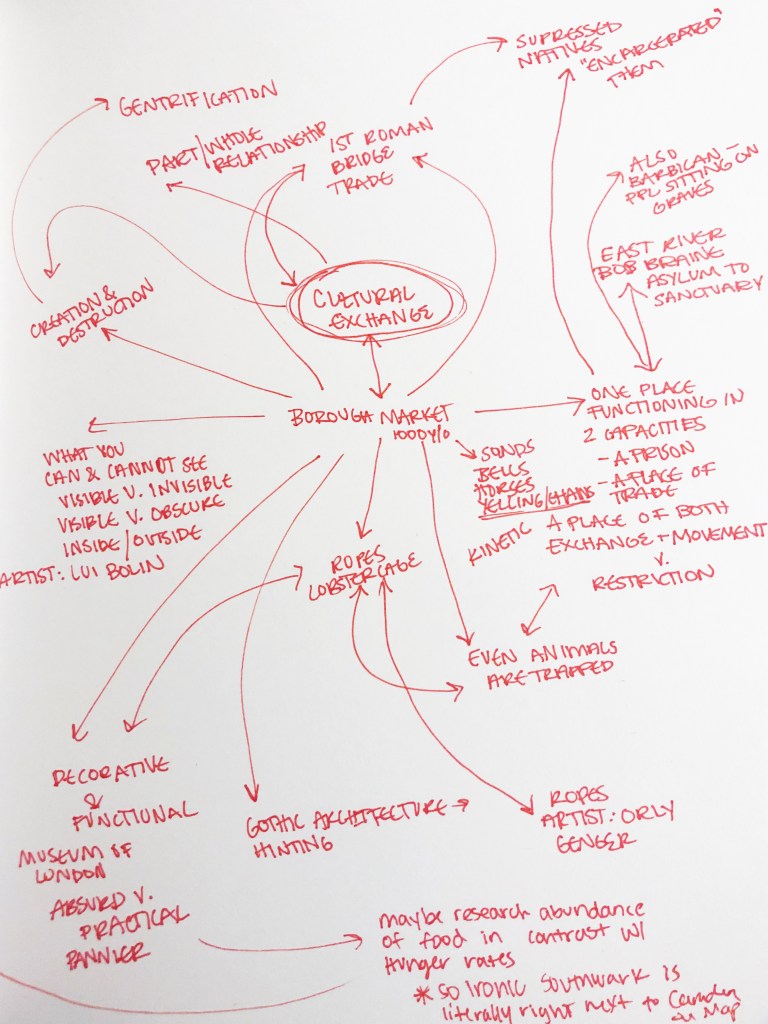 SUPRESSED
NATIVES
"ENCARCERATED"
THEM
GENTRIFICATION
PART/WHOLE
RELATIONSHIP
1ST ROMAN
BRIDGE
TRADE
ALSO
BARBICAN -
PPL SITTING ON
GRAVES
EAST RIVER
BOB BRAINE
ASYLUM TO
SANCTUARY
CULTURAL
EXCHANGE
CREATION &
DESTRUCTION
BOROUGH MARKET
1000 Y/O
ONE PLACE
FUNCTIONING IN
2 CAPACITIES
- A PRISON
- A PLACE OF
TRADE
SONDS
BELLS
HORSES
YELLING/CHAINS
KINETIC
A PLACE OF BOTH
EXCHANGE + MOVEMENT
V.
RESTRICTION
WHAT YOU
CAN & CANNOT SEE
VISIBLE V. INVISIBLE
VISIBLE V. OBSCURE
INSIDE/OUTSIDE
ARTIST: LUI BOLIN
ROPES
LOBSTER CAGE
EVEN ANIMALS
ARE TRAPPED
DECORATIVE
&
FUNCTIONAL
MUSEUM OF
LONDON
ABSURD V.
PRACTICAL
PANNIER
GOTHIC ARCHITECTURE →
HINTING
ROPES
ARTIST: ORLY
GENGER
maybe research abundance
of food in contrast w/
hunger rates
* so ironic Southwark is
literally right next to Camden
on Map